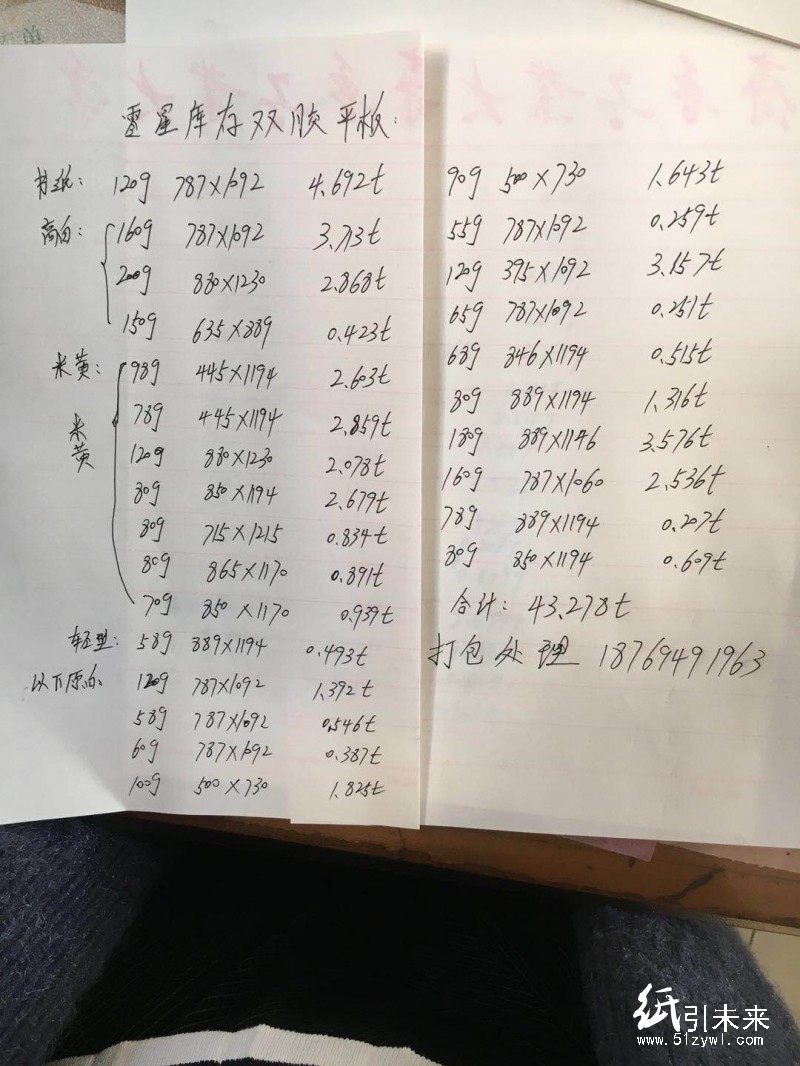 雷星库存双胶平板:
书纸: 120g 787×1092 4.692t
高白: 160g 787×1092 3.73t
200g 880×1230 2.868t
150g 635×889 0.423t
米黄: 98g 445×1194 2.603t
米黄 78g 445×1194 2.859t
120g 880×1230 2.078t
80g 850×1194 2.679t
80g 715×1215 0.834t
80g 865×1170 0.891t
70g 850×1170 0.939t
轻型: 58g 889×1194 0.493t
以下原白 120g 787×1092 1.392t
58g 787×1092 0.546t
60g 787×1092 0.387t
100g 500×730 1.825t
90g 500×730 1.643t
55g 787×1092 0.259t
120g 395×1092 3.157t
65g 787×1092 0.251t
68g 846×1194 0.515t
80g 889×1194 1.316t
180g 889×1146 3.576t
160g 787×1060 2.536t
78g 889×1194 0.207t
80g 850×1194 0.609t
合计: 43.278t
打包处理 18769491963
纸引未来
www.51zywl.com